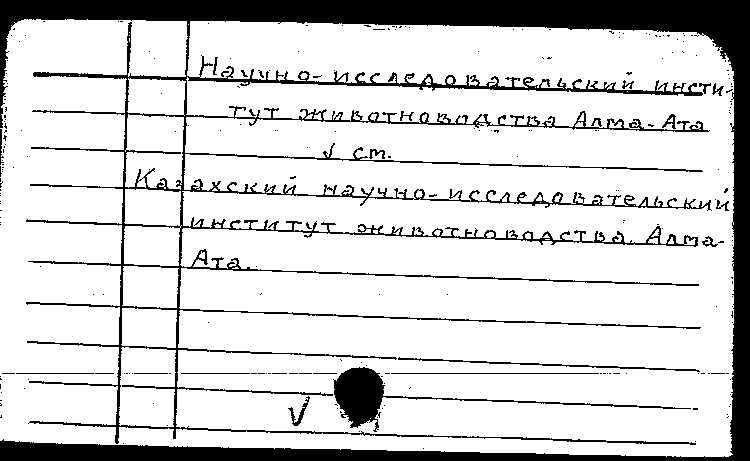 Научно-исследовательский инсти-
тут животноводства Алма-Ата
√ см.
Казахский научно-исследовательский
институт животноводства. Алма-
Ата.
√